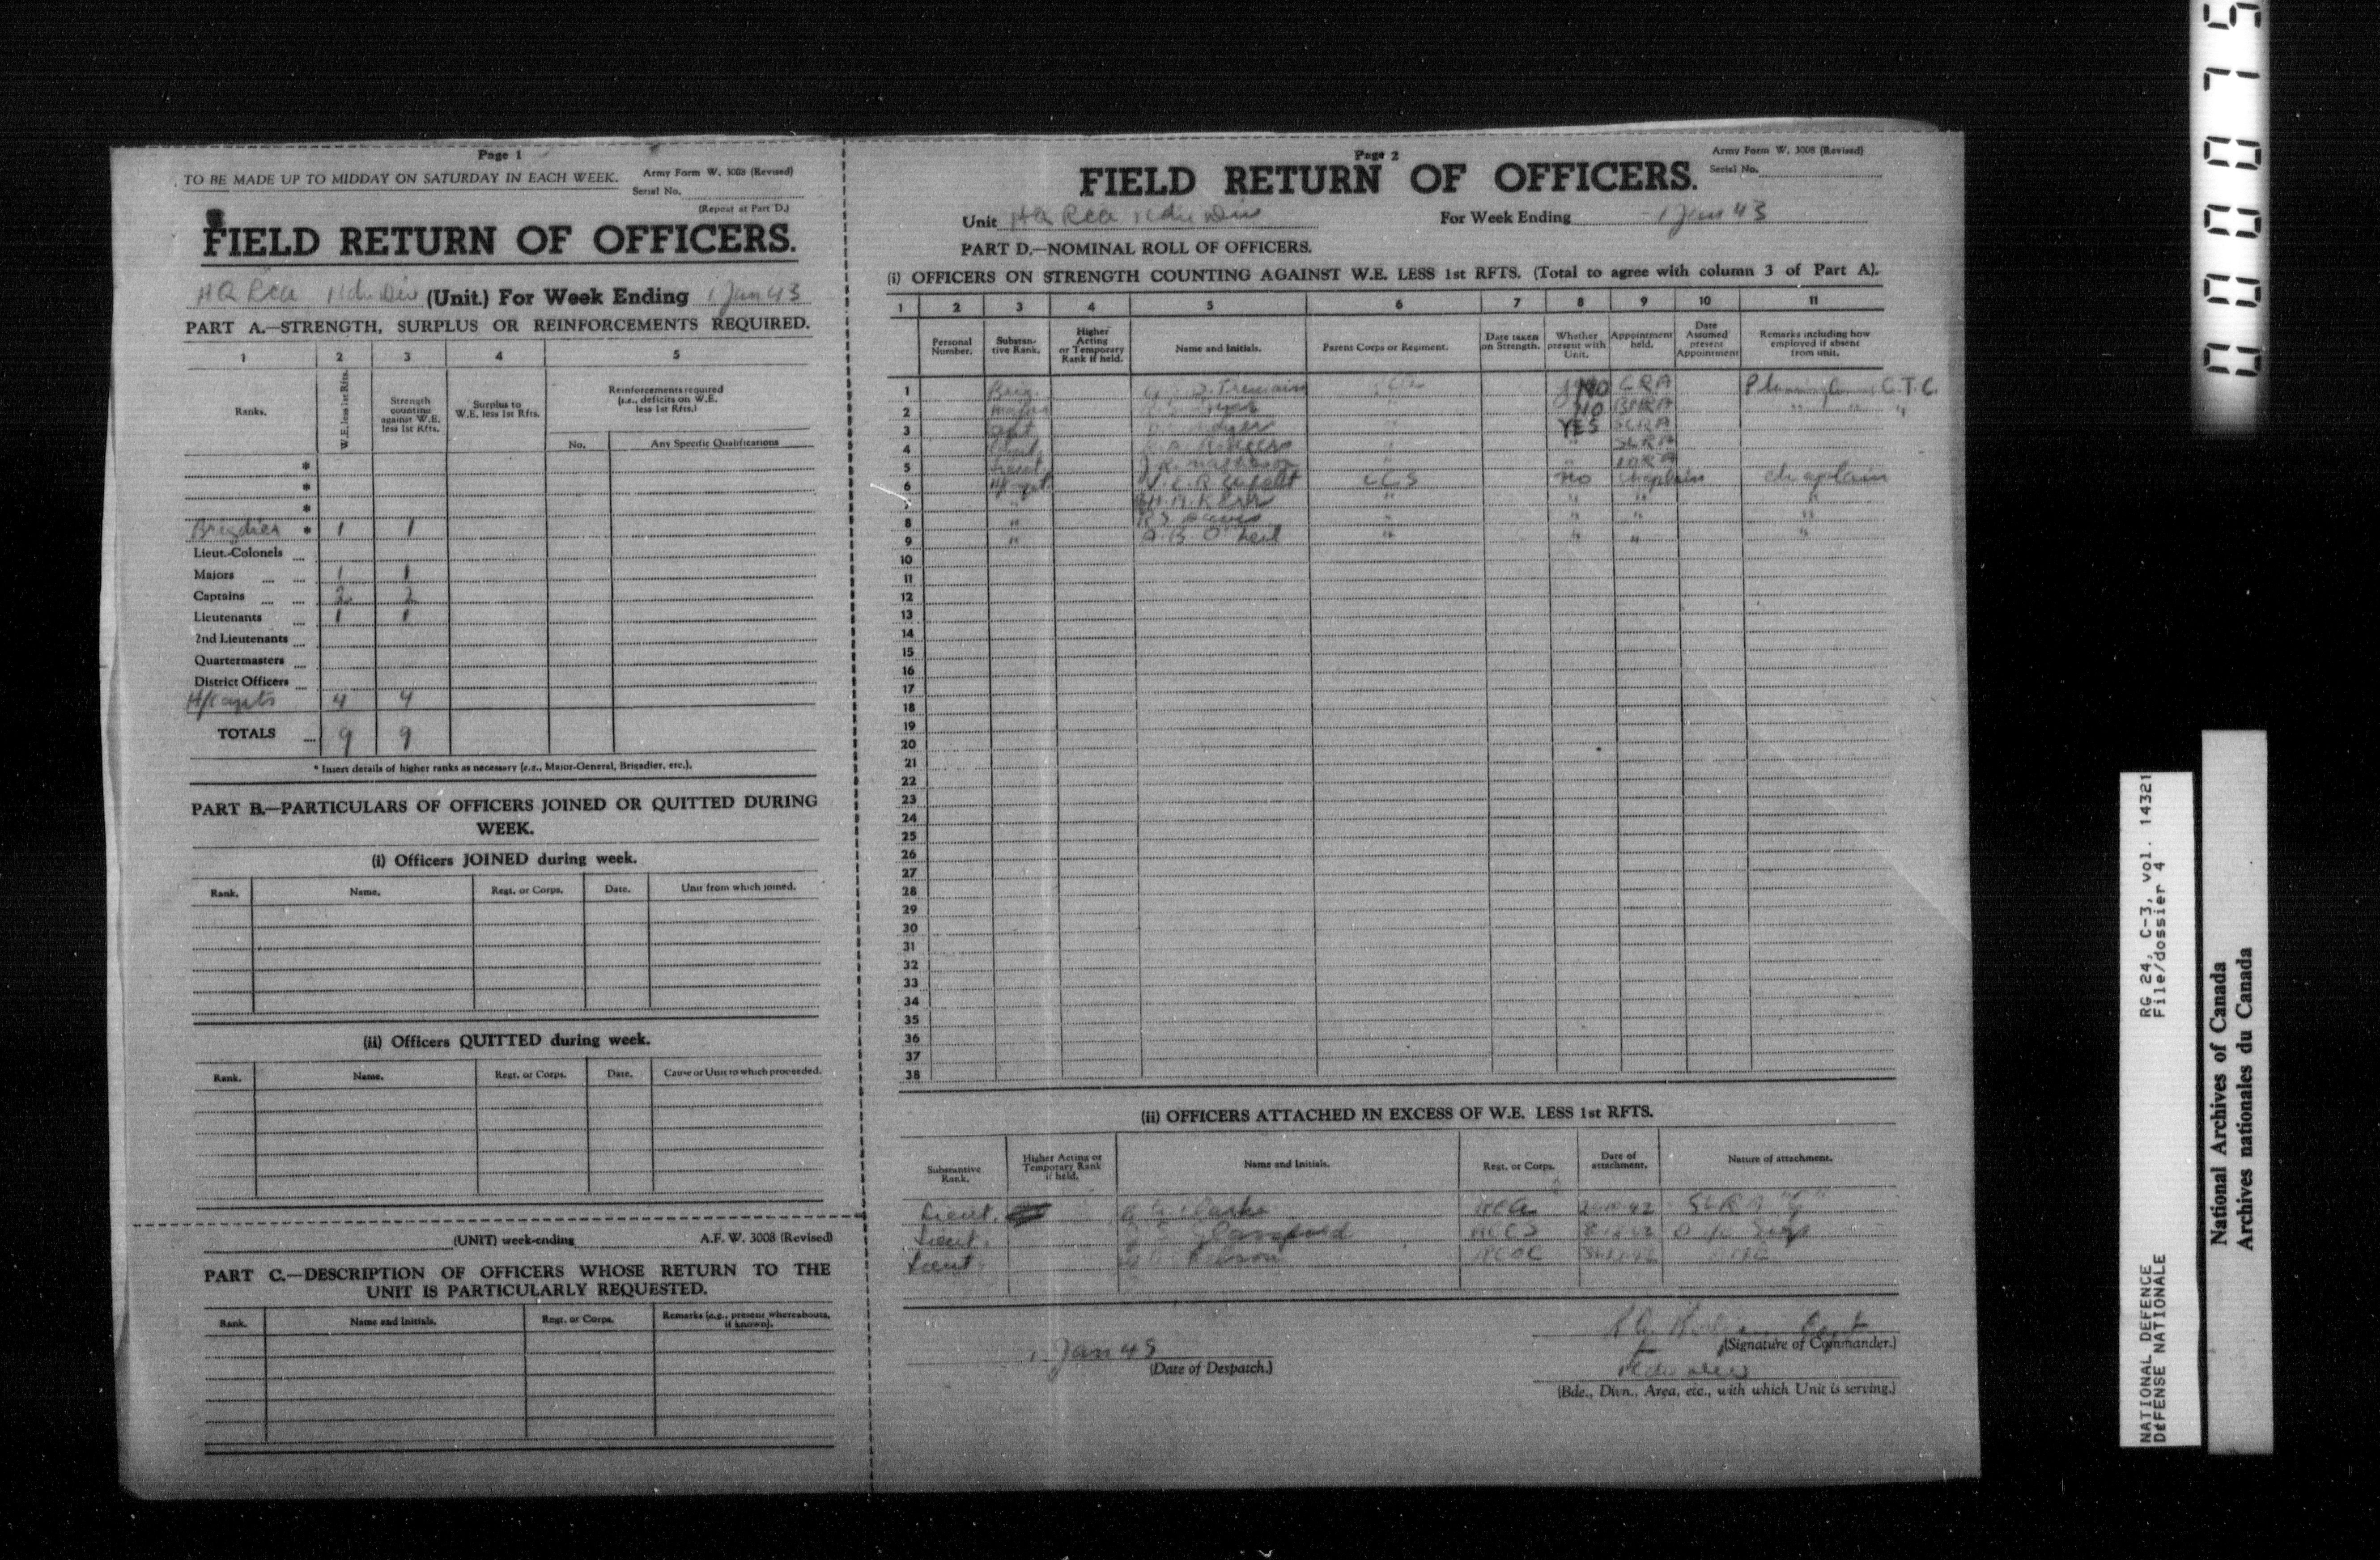 Page 1
TO BE MADE UP TO MIDDAY ON SATURDAY IN EACH WEEK.
Army Form W. 3008 (Revised)
Serial No.
(Repeat at Part D.)
FIELD RETURN OF OFFICERS.
HQ RCA (Unit.) For Week Ending 1 Jan 43
PART A.—STRENGTH, SURPLUS OR REINFORCEMENTS REQUIRED.
1 2 3 4 5
Ranks.
W.E. less 1st Rfts.
Strength counting against W.E. less 1st Rfts.
Surplus to W.E. less 1st Rfts.
Reinforcements required (i.e., deficits on W.E. less 1st Rfts.)
No. Any Specific Qualifications
*
*
*
* 1 1
Lieut.-Colonels
Majors 1 1
Captains 2 2
Lieutenants 1 1
2nd Lieutenants
Quartermasters
District Officers
H/Capts 4 4
TOTALS 9 9
* Insert details of higher ranks as necessary (e.g., Major-General, Brigadier, etc.).
PART B.—PARTICULARS OF OFFICERS JOINED OR QUITTED DURING
WEEK.
(i) Officers JOINED during week.
Rank. Name. Regt. or Corps. Date. Unit from which joined.
(ii) Officers QUITTED during week.
Rank. Name. Regt. or Corps. Date. Cause or Unit to which proceeded.
(UNIT) week-ending A.F. W. 3008 (Revised)
PART C.—DESCRIPTION OF OFFICERS WHOSE RETURN TO THE
UNIT IS PARTICULARLY REQUESTED.
Rank. Name and Initials. Regt. or Corps. Remarks (e.g., present whereabouts, if known).
Page 2
Army Form W. 3008 (Revised)
Serial No.
FIELD RETURN OF OFFICERS.
Unit HQ RCA For Week Ending 1 Jan 43
PART D.—NOMINAL ROLL OF OFFICERS.
(i) OFFICERS ON STRENGTH COUNTING AGAINST W.E. LESS 1st RFTS. (Total to agree with column 3 of Part A).
1 2 3 4 5 6 7 8 9 10 11
Personal Number.
Substantive Rank.
Higher Acting or Temporary Rank if held.
Name and Initials.
Parent Corps or Regiment.
Date taken on Strength.
Whether present with Unit.
Appointment held.
Date Assumed present Appointment
Remarks including how employed if absent from unit.
1 Brig. Tremain NO CRA C.T.C.
2 Major NO BMRA " " "
3 Capt " YES SCRA
4 " " SLRA
5 Lieut. " " IORA
6 H/Capt CCS No Chaplain Chaplain
7 " H.M. Kerr " " " "
8 " " " " "
9 " A.B. O'Neil " " " "
10
11
12
13
14
15
16
17
18
19
20
21
22
23
24
25
26
27
28
29
30
31
32
33
34
35
36
37
38
(ii) OFFICERS ATTACHED IN EXCESS OF W.E. LESS 1st RFTS.
Substantive Rank.
Higher Acting or Temporary Rank if held.
Name and Initials.
Regt. or Corps.
Date of attachment.
Nature of attachment.
Lieut. Clarke RCA SLRA
Lieut. Glassford
Lieut. RCOC
Capt
(Signature of Commander.)
1 Jan 43
(Date of Despatch.)
(Bde., Divn., Area, etc., with which Unit is serving.)
00075
NATIONAL DEFENCE RG 24, C-3, vol. 14321
DEFENSE NATIONALE File/dossier 4
National Archives of Canada
Archives nationales du Canada